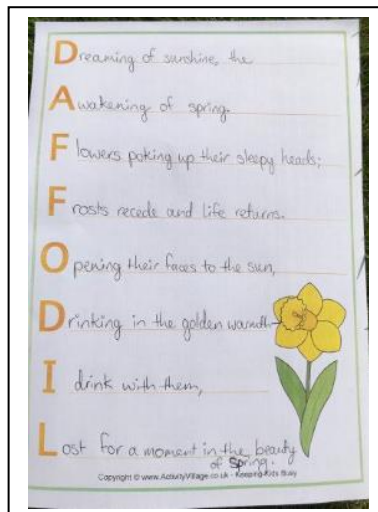 Dreaming of sunshine, the
Awakening of spring.
Flowers poking up their sleepy heads;
Frosts recede and life returns.
Opening their faces to the sun,
Drinking in the golden warmth-
I drink with them,
Lost for a moment in the beauty
of Spring.
Copyright © www.ActivityVillage.co.uk - Keeping Kids Busy